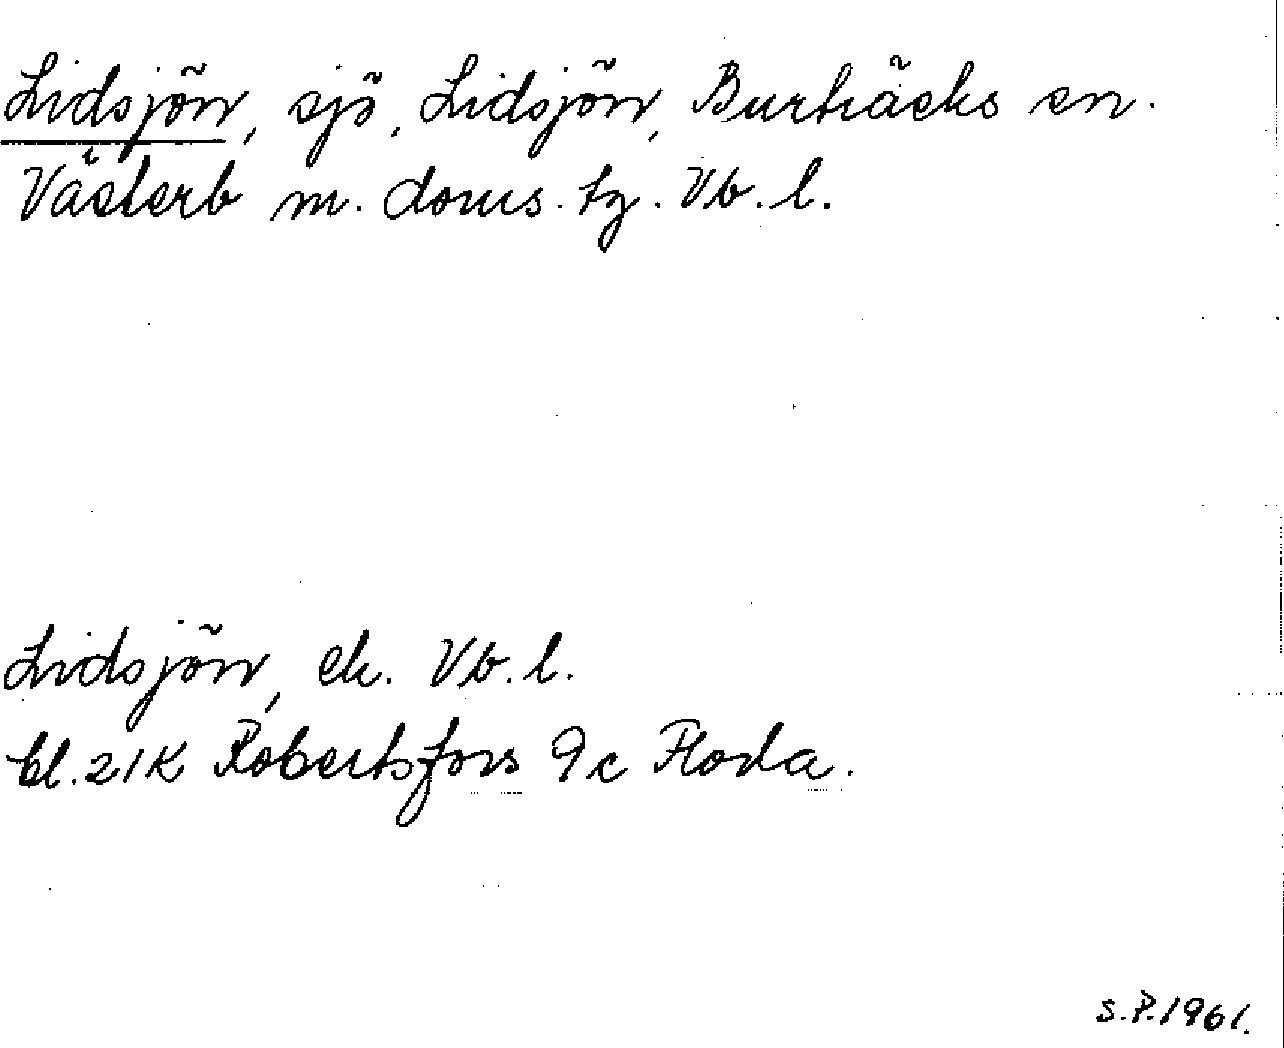 Lidsjön, sjö, Lidsjön, Burträsks sn.
Västerb m. doms. tg. Vb. l.
Lidsjön, ek. Vb. l.
bl. 21K Robertsfors 9c Floda.
S.P. 1961.